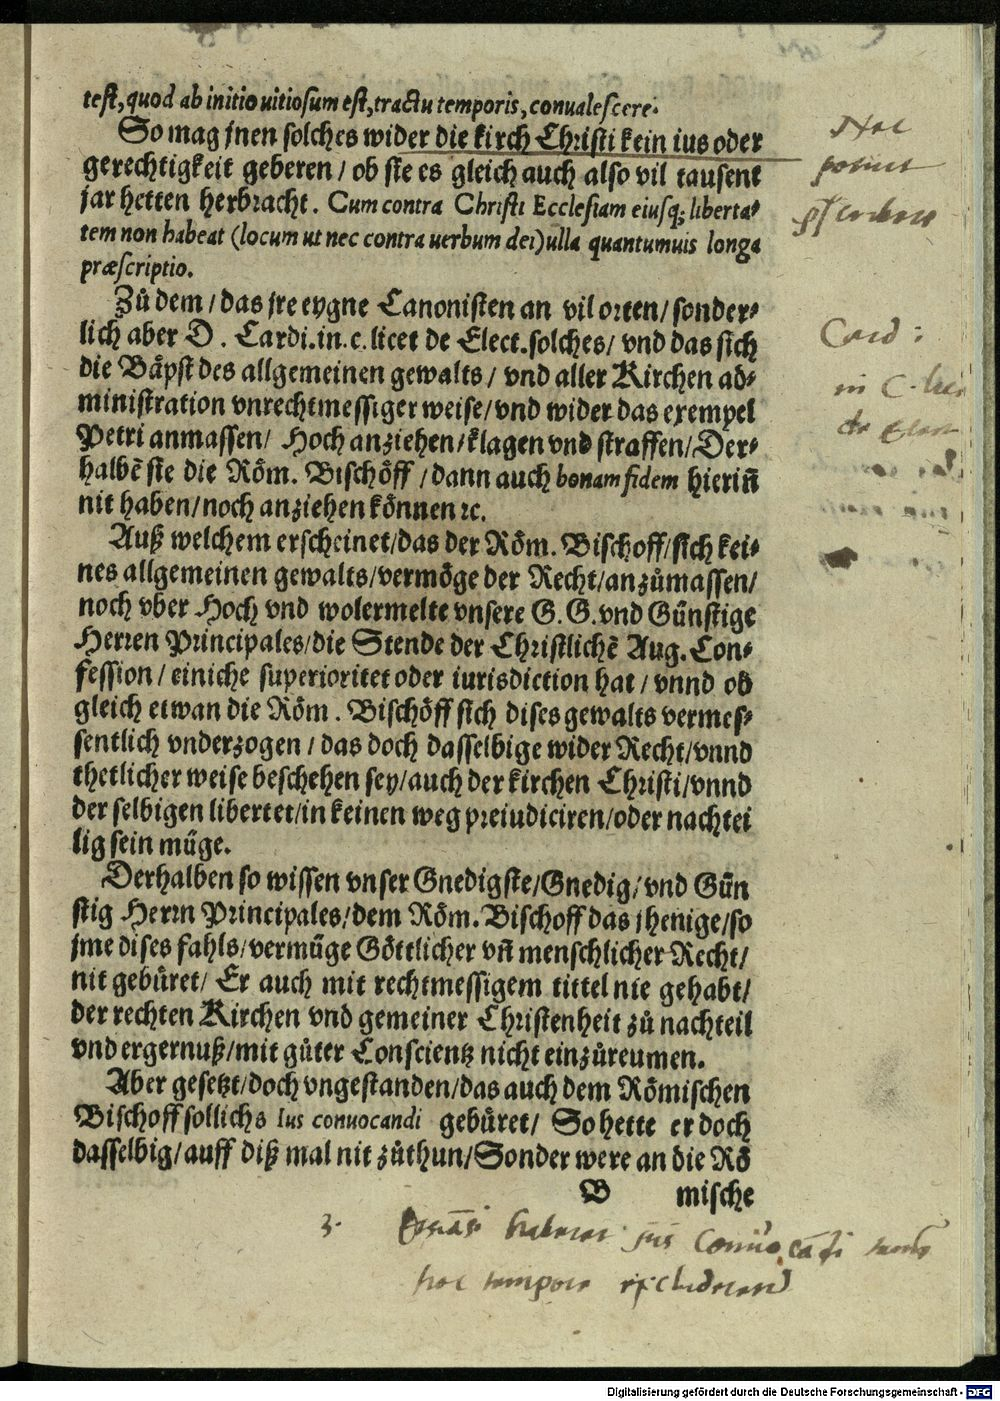 test, quod ab initio uitiosum est, tractu temporis, conualescere.
So mag jnen solches wider die kirch Christi kein ius oder
gerechtigkeit geberen / ob sie es gleich auch also vil tausent
jar hetten herbracht. Cum contra Christi Ecclesiam eiusq; liberta⸗
tem non habeat (locum ut nec contra uerbum dei) ulla quantumuis longa
præscriptio.
Zů dem / das jre eygne Canonisten an vil orten / sonder⸗
lich aber D. Cardi. in. c. licet de Elect. solches / vnd das sich
die Bäpst des allgemeinen gewalts / vnd aller Kirchen ad⸗
ministration vnrechtmessiger weise / vnd wider das exempel
Petri anmassen / Hoch anziehen / klagen vnd straffen / Der⸗
halbē sie die Röm. Bischöff / dann auch bonam fidem hierin̄
nit haben / noch anziehen können ꝛc.
Auß welchem erscheinet / das der Röm. Bischoff / sich kei⸗
nes allgemeinen gewalts / vermöge der Recht / anzůmassen /
noch vber Hoch vnd wolermelte vnsere G. G. vnd Günstige
Herren Principales / die Stende der Christlichē Aug. Con⸗
fession / einiche superioritet oder iurisdiction hat / vnnd ob
gleich etwan die Röm. Bischöff sich dises gewalts vermes⸗
sentlich vnderzogen / das doch dasselbige wider Recht / vnnd
thetlicher weise beschehen sey / auch der kirchen Christi / vnnd
der selbigen libertet / in keinen weg preiudiciren / oder nachtei
lig sein müge.
Derhalben so wissen vnser Gnedigste / Gnedig / vnd Gün
stig Herrn Principales / dem Röm. Bischoff das jhenige / so
jme dises fahls / vermüge Göttlicher vn̄ menschlicher Recht /
nit gebüret / Er auch mit rechtmessigem tittel nie gehabt /
der rechten Kirchen vnd gemeiner Christenheit zů nachteil
vnd ergernuß / mit gůter Conscientz nicht einzůreumen.
Aber gesetzt / doch vngestanden / das auch dem Römischen
Bischoff sollichs Ius conuocandi gebüret / So hette er doch
dasselbig / auff diß mal nit zůthun / Sonder were an die Rö
B mische
Card:
in C.
3. haberet jus Conuocādi
hoc tempore
Digitalisierung gefördert durch die Deutsche Forschungsgemeinschaft - DFG